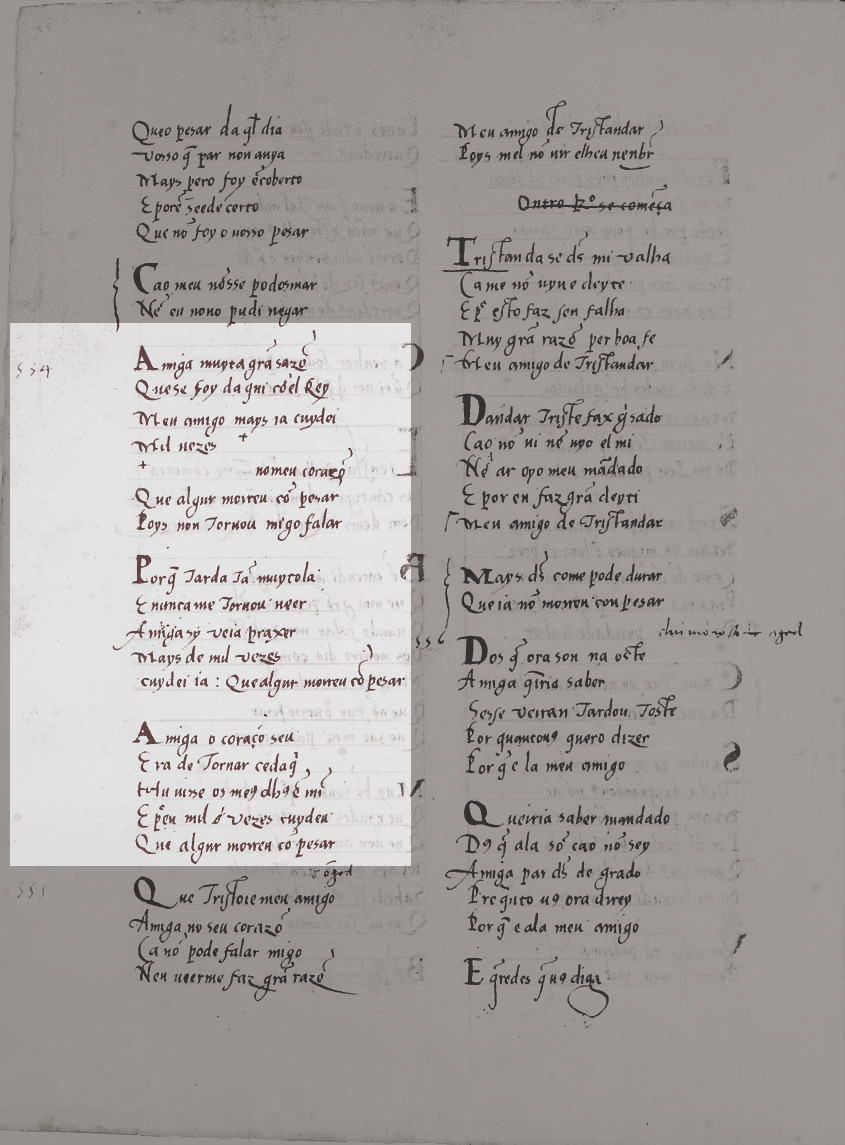 Queo pesar da q̃l dia
vosso q̃ par non auya
Mays pero foy ẽcoberto
E porẽ seede certo
Que nõ foy o uosso pesar
Cao meu nõsse podosmar
Nẽ eu nono pudi negar
554
Amiga muyta grã sazõ
Quese foy daqui cõ el Rey
Meu amigo mays ia cuydei
Mil uezes +
+ nomeu coraçõ
Que algur morreu cõ pesar
Poys non Tornou migo falar
Porq̃ Tarda Tã muyto la
E nuncame Tornou ueer
Amiga sy veia prazer
Mays de mil vezes
cuydei ia : Que algur morreu cõ pesar
Amiga o coraçõ seu
Era de Tornar cedaq̃
Hu uisse os me9 olh9 ẽ mĩ
E pẽu mil vezes cuydeu
Que algur morreu cõ pesar
555
Que Tristoie meu amigo
Amiga no seu coraçõ
Ca nõ pode falar migo
Nen ueerme faz grã razõ
Meu amigo de Tristandar
Poys mel nõ uir elhea nenbr
Outro Rº se começa
Tristan da se d̃s mi valha
Ca me nõ uyu e deyte
E pẽ esto faz sen falha
Muy grã razõ per boa fe
Meu amigo de Tristandar
Dandar Triste fax g̃sado
Cao nõ ui nẽ uyo el mi
Nẽ ar oyo meu mãdado
E por en faz grã deyti
Meu amigo de Tristandar
Mays d̃s come pode durar
Que ia nõ morreu con pesar
556
Dos q̃ ora son na oste
Amiga q̃rria saber
Sesse veiran Tardou Toste
Por quanto u9 quero dizer
Por q̃ e la meu amigo
Queiria saber mandado
D9 q̃ ala sõ cao nõ sey
Amiga par d̃s de grado
Pregũto u9 ora direy
Por q̃ e ala meu amigo
E q̃redes q̃ u9 diga